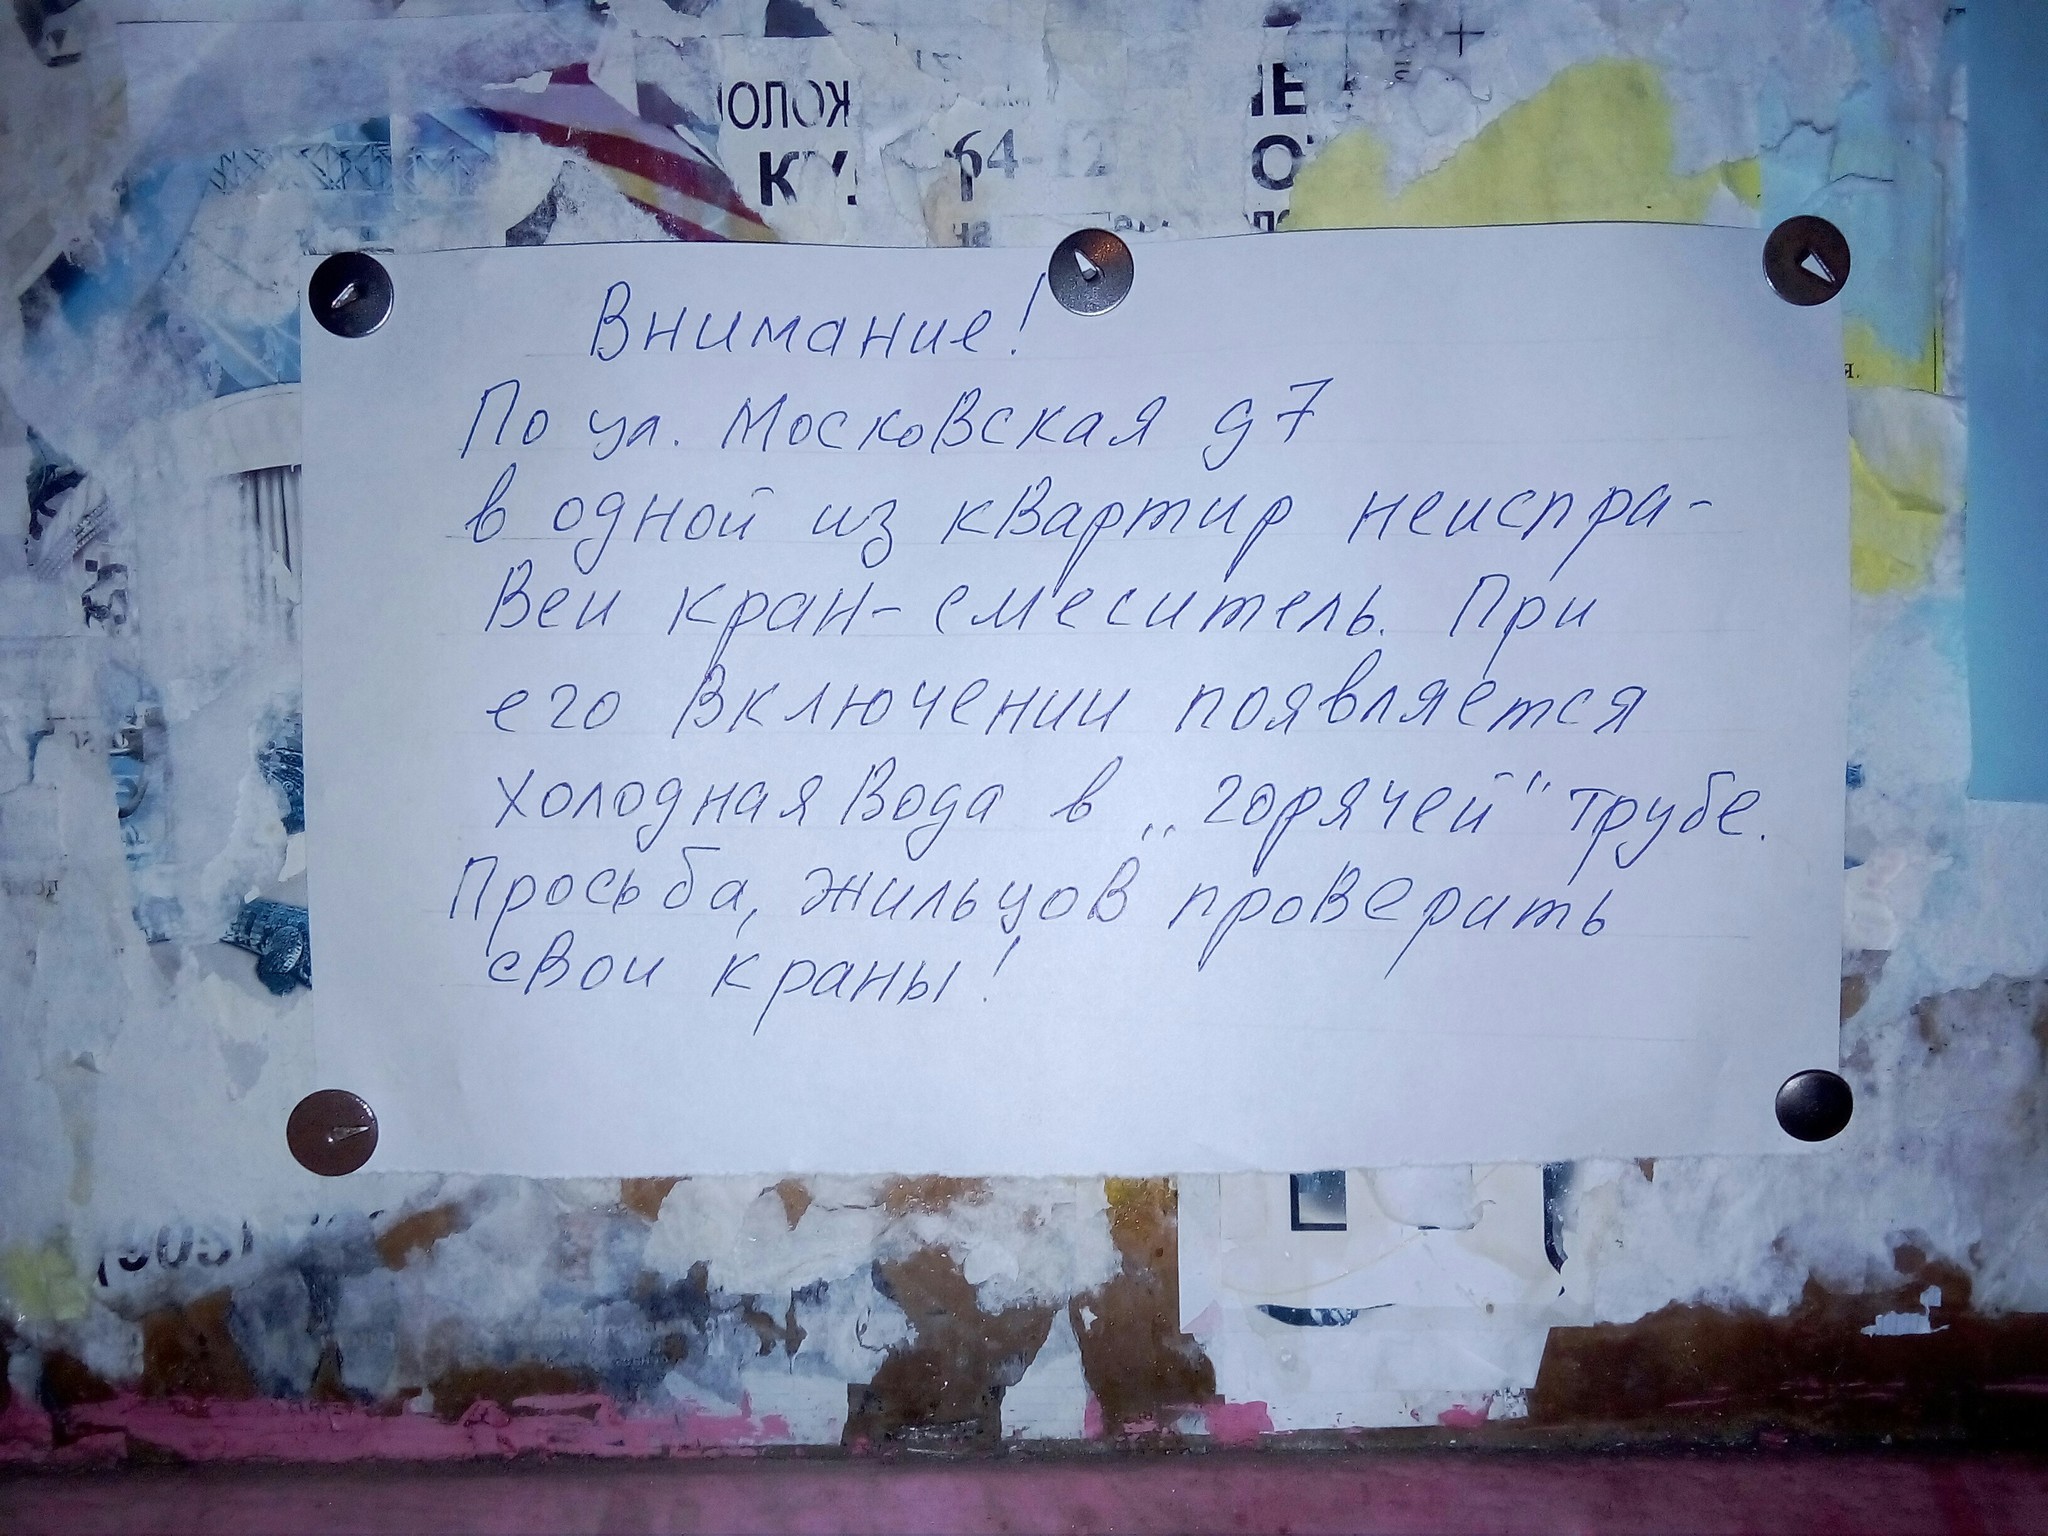 ОЛОЖ
КУ
64-12
Внимание!
По ул. Московская д7
в одной из квартир неиспра-
вен кран-смеситель. При
его включении появляется
холодная вода в „горячей" трубе.
Просьба, жильцов проверить
свои краны!